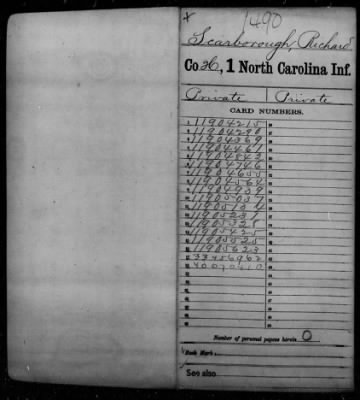 x
1490
Scarborough, Richard
Co 26, 1 North Carolina Inf.
Private | Private
CARD NUMBERS.
11904215
11904290
11904369
11904461
11904843
11904746
11904655
11904564
11904939
11905037
11905134
11905231
11905328
11905425
11905525
11905623
33456962
Number of personal papers herein 0
Book Mark:
See also